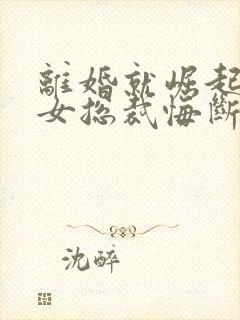 離婚就崛起
女總裁悔斷
沈醉